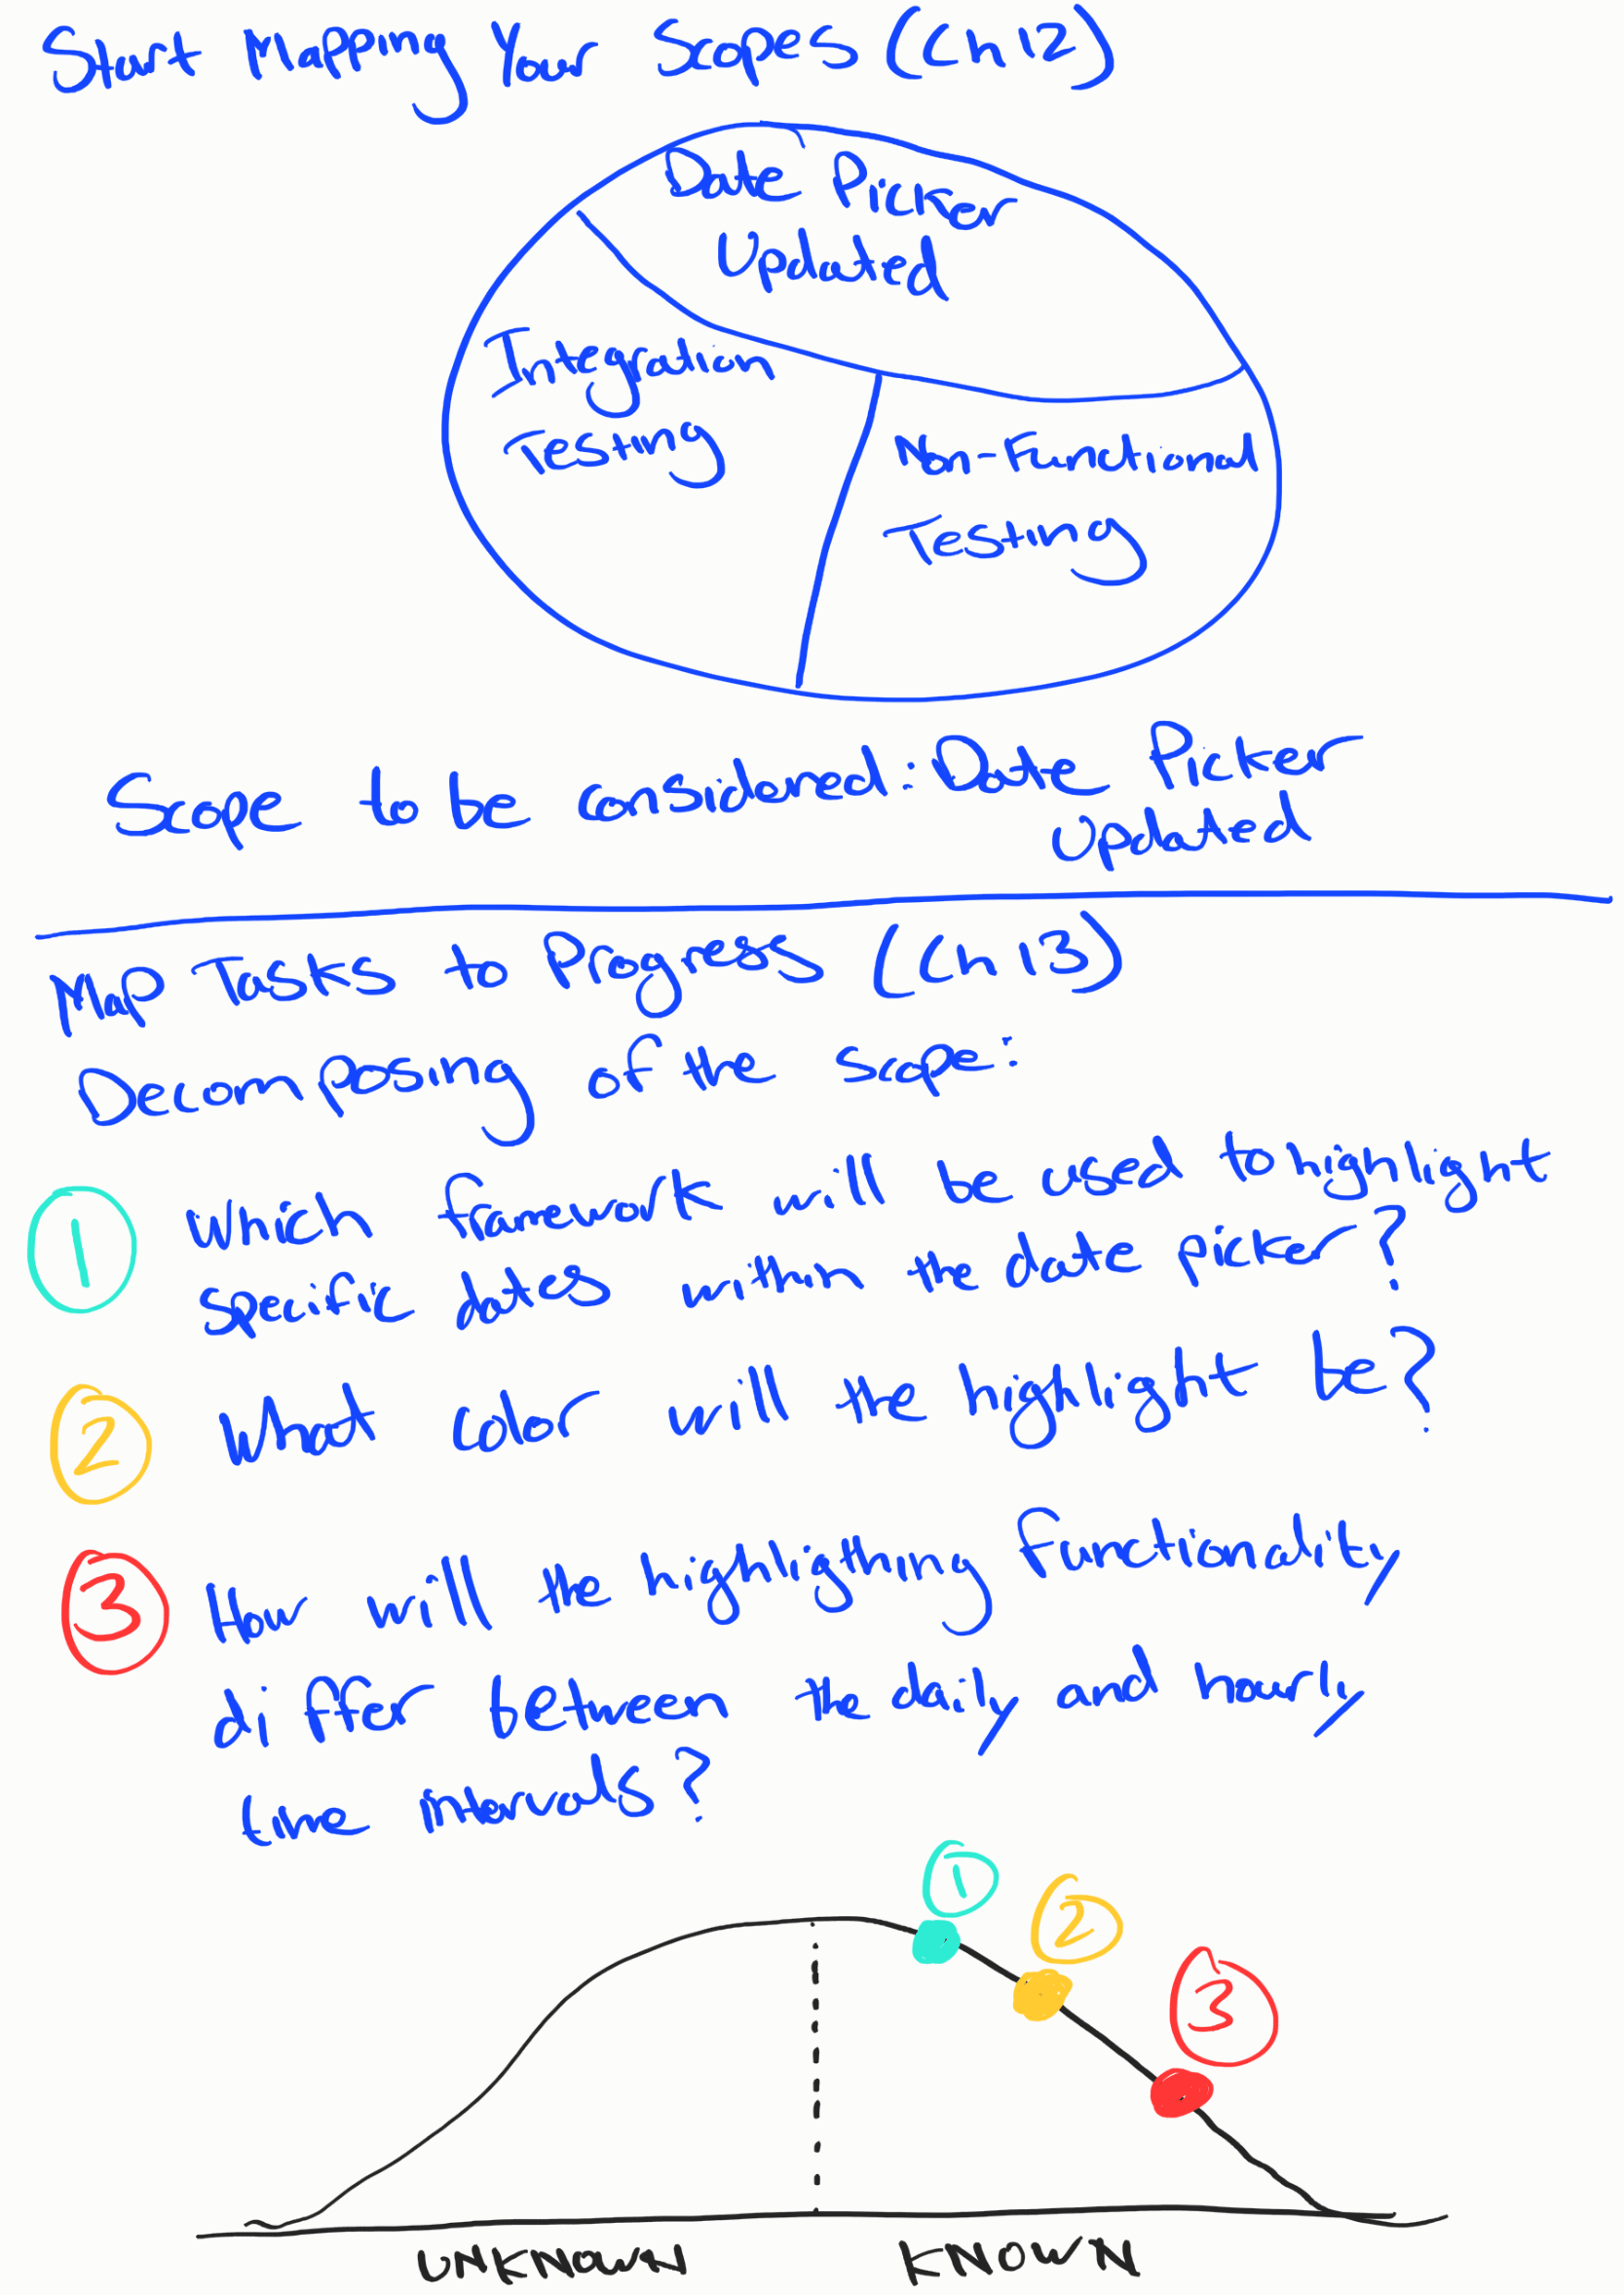 Start Mapping Your Scopes (Ch 12)
Date Picker
Updated
Integration
Testing
Non-Functional
Testing
Scope to be considered: Date Picker
Updated
Map Tasks to Progress (Ch 13)
Decomposing of the scope:
1 Which framework will be used to highlight
specific dates within the date picker?
2 What color will the highlight be?
3 How will the highlighting functionality
differ between the daily and hourly
time intervals?
1
2
3
UNKNOWN KNOWN